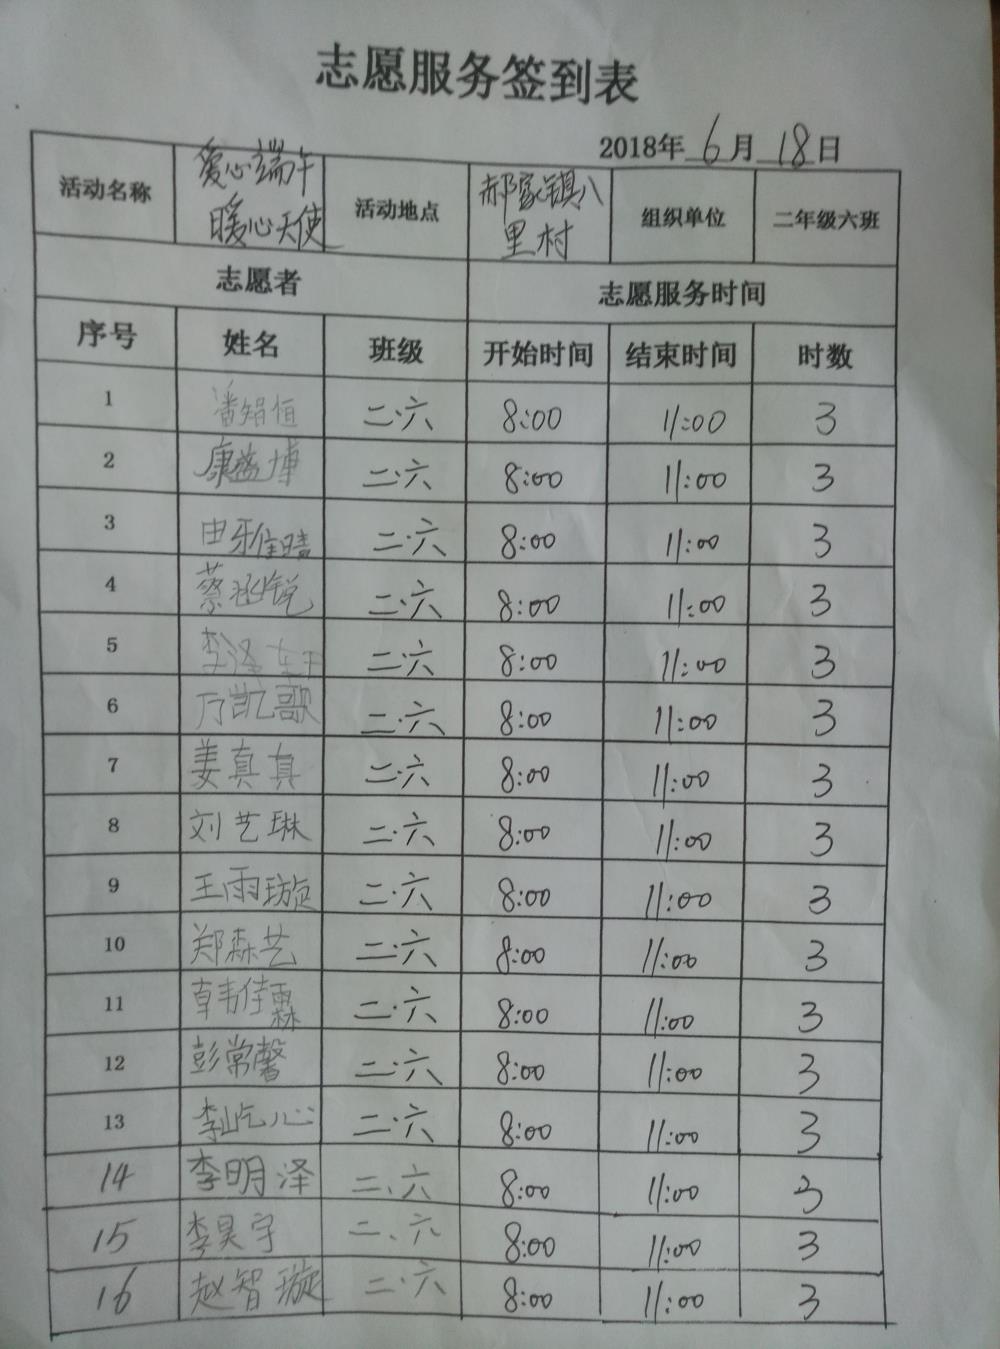 志愿服务签到表
2018年 6 月 18 日
活动名称 爱心端午 暖心天使 活动地点 郝家镇八里村 组织单位 二年级六班
志愿者 志愿服务时间
序号 姓名 班级 开始时间 结束时间 时数
1 潘绢恒 二·六 8:00 11:00 3
2 康益博 二·六 8:00 11:00 3
3 由雅晴 二·六 8:00 11:00 3
4 蔡丞锐 二·六 8:00 11:00 3
5 李泽轩 二·六 8:00 11:00 3
6 凯歌 二·六 8:00 11:00 3
7 姜真真 二·六 8:00 11:00 3
8 刘艺琳 二·六 8:00 11:00 3
9 王雨璇 二·六 8:00 11:00 3
10 郑森艺 二·六 8:00 11:00 3
11 韩佳霖 二·六 8:00 11:00 3
12 彭常馨 二·六 8:00 11:00 3
13 李屹心 二·六 8:00 11:00 3
14 李明泽 二、六 8:00 11:00 3
15 李昊宇 二、六 8:00 11:00 3
16 赵智璇 二·六 8:00 11:00 3